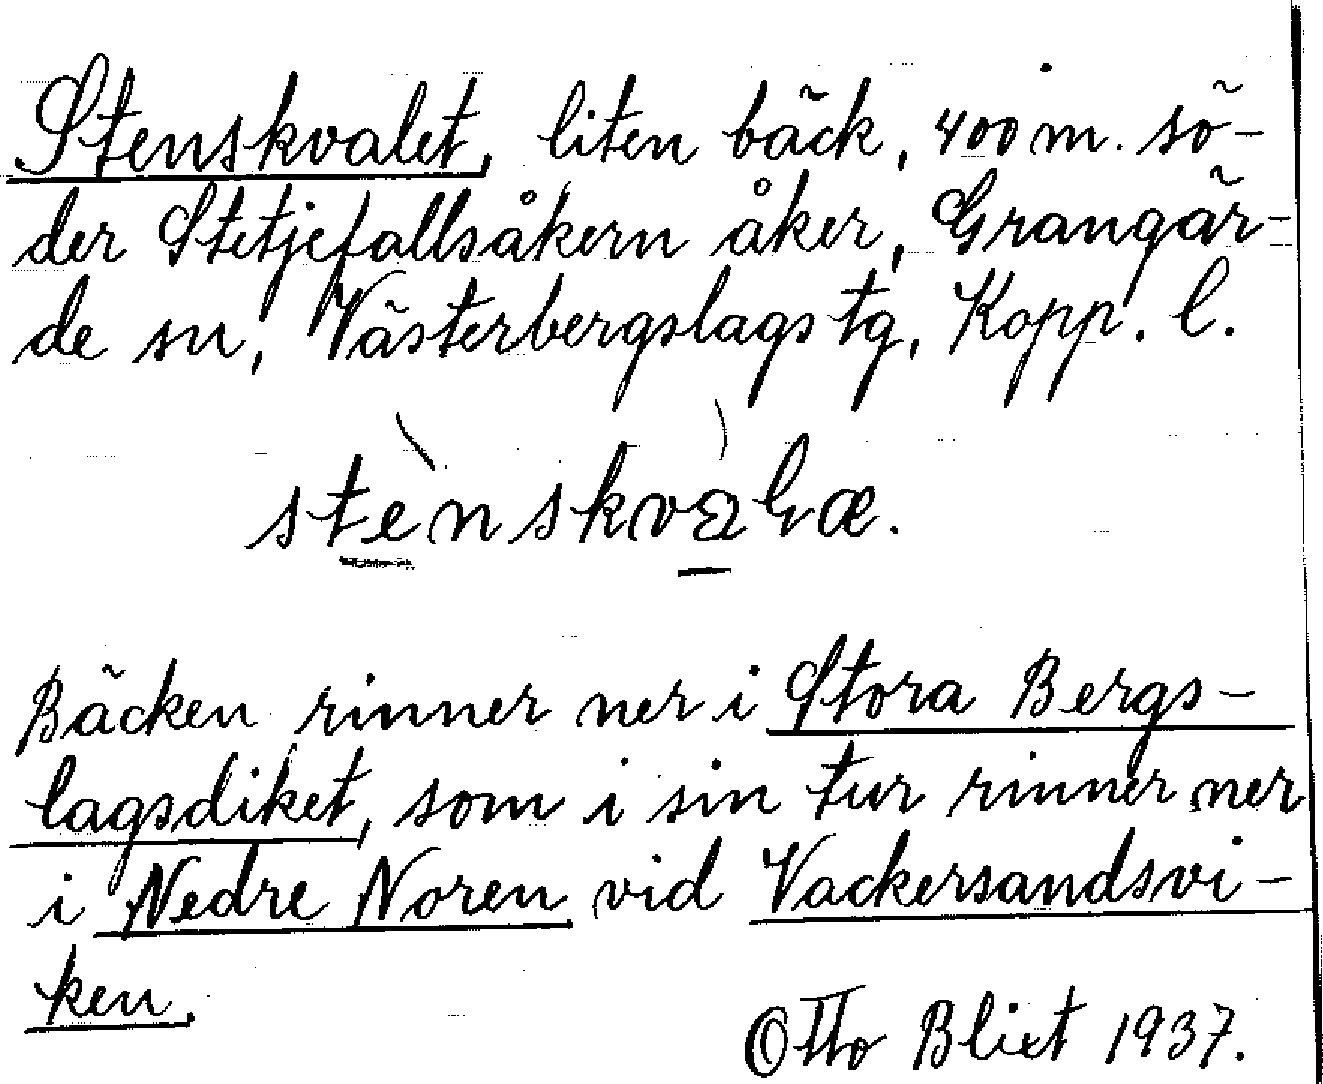 Stenskvalet, liten bäck, 400 m. sö-
der Stetjefallsåkern åker, Grangär-
de sn, Västerbergslags tg, Kopp. l.
Bäcken rinner ner i Stora Bergs-
lagsdiket, som i sin tur rinner ner
i Nedre Noren vid Vackersandsvi-
ken.
Otto Blixt 1937.